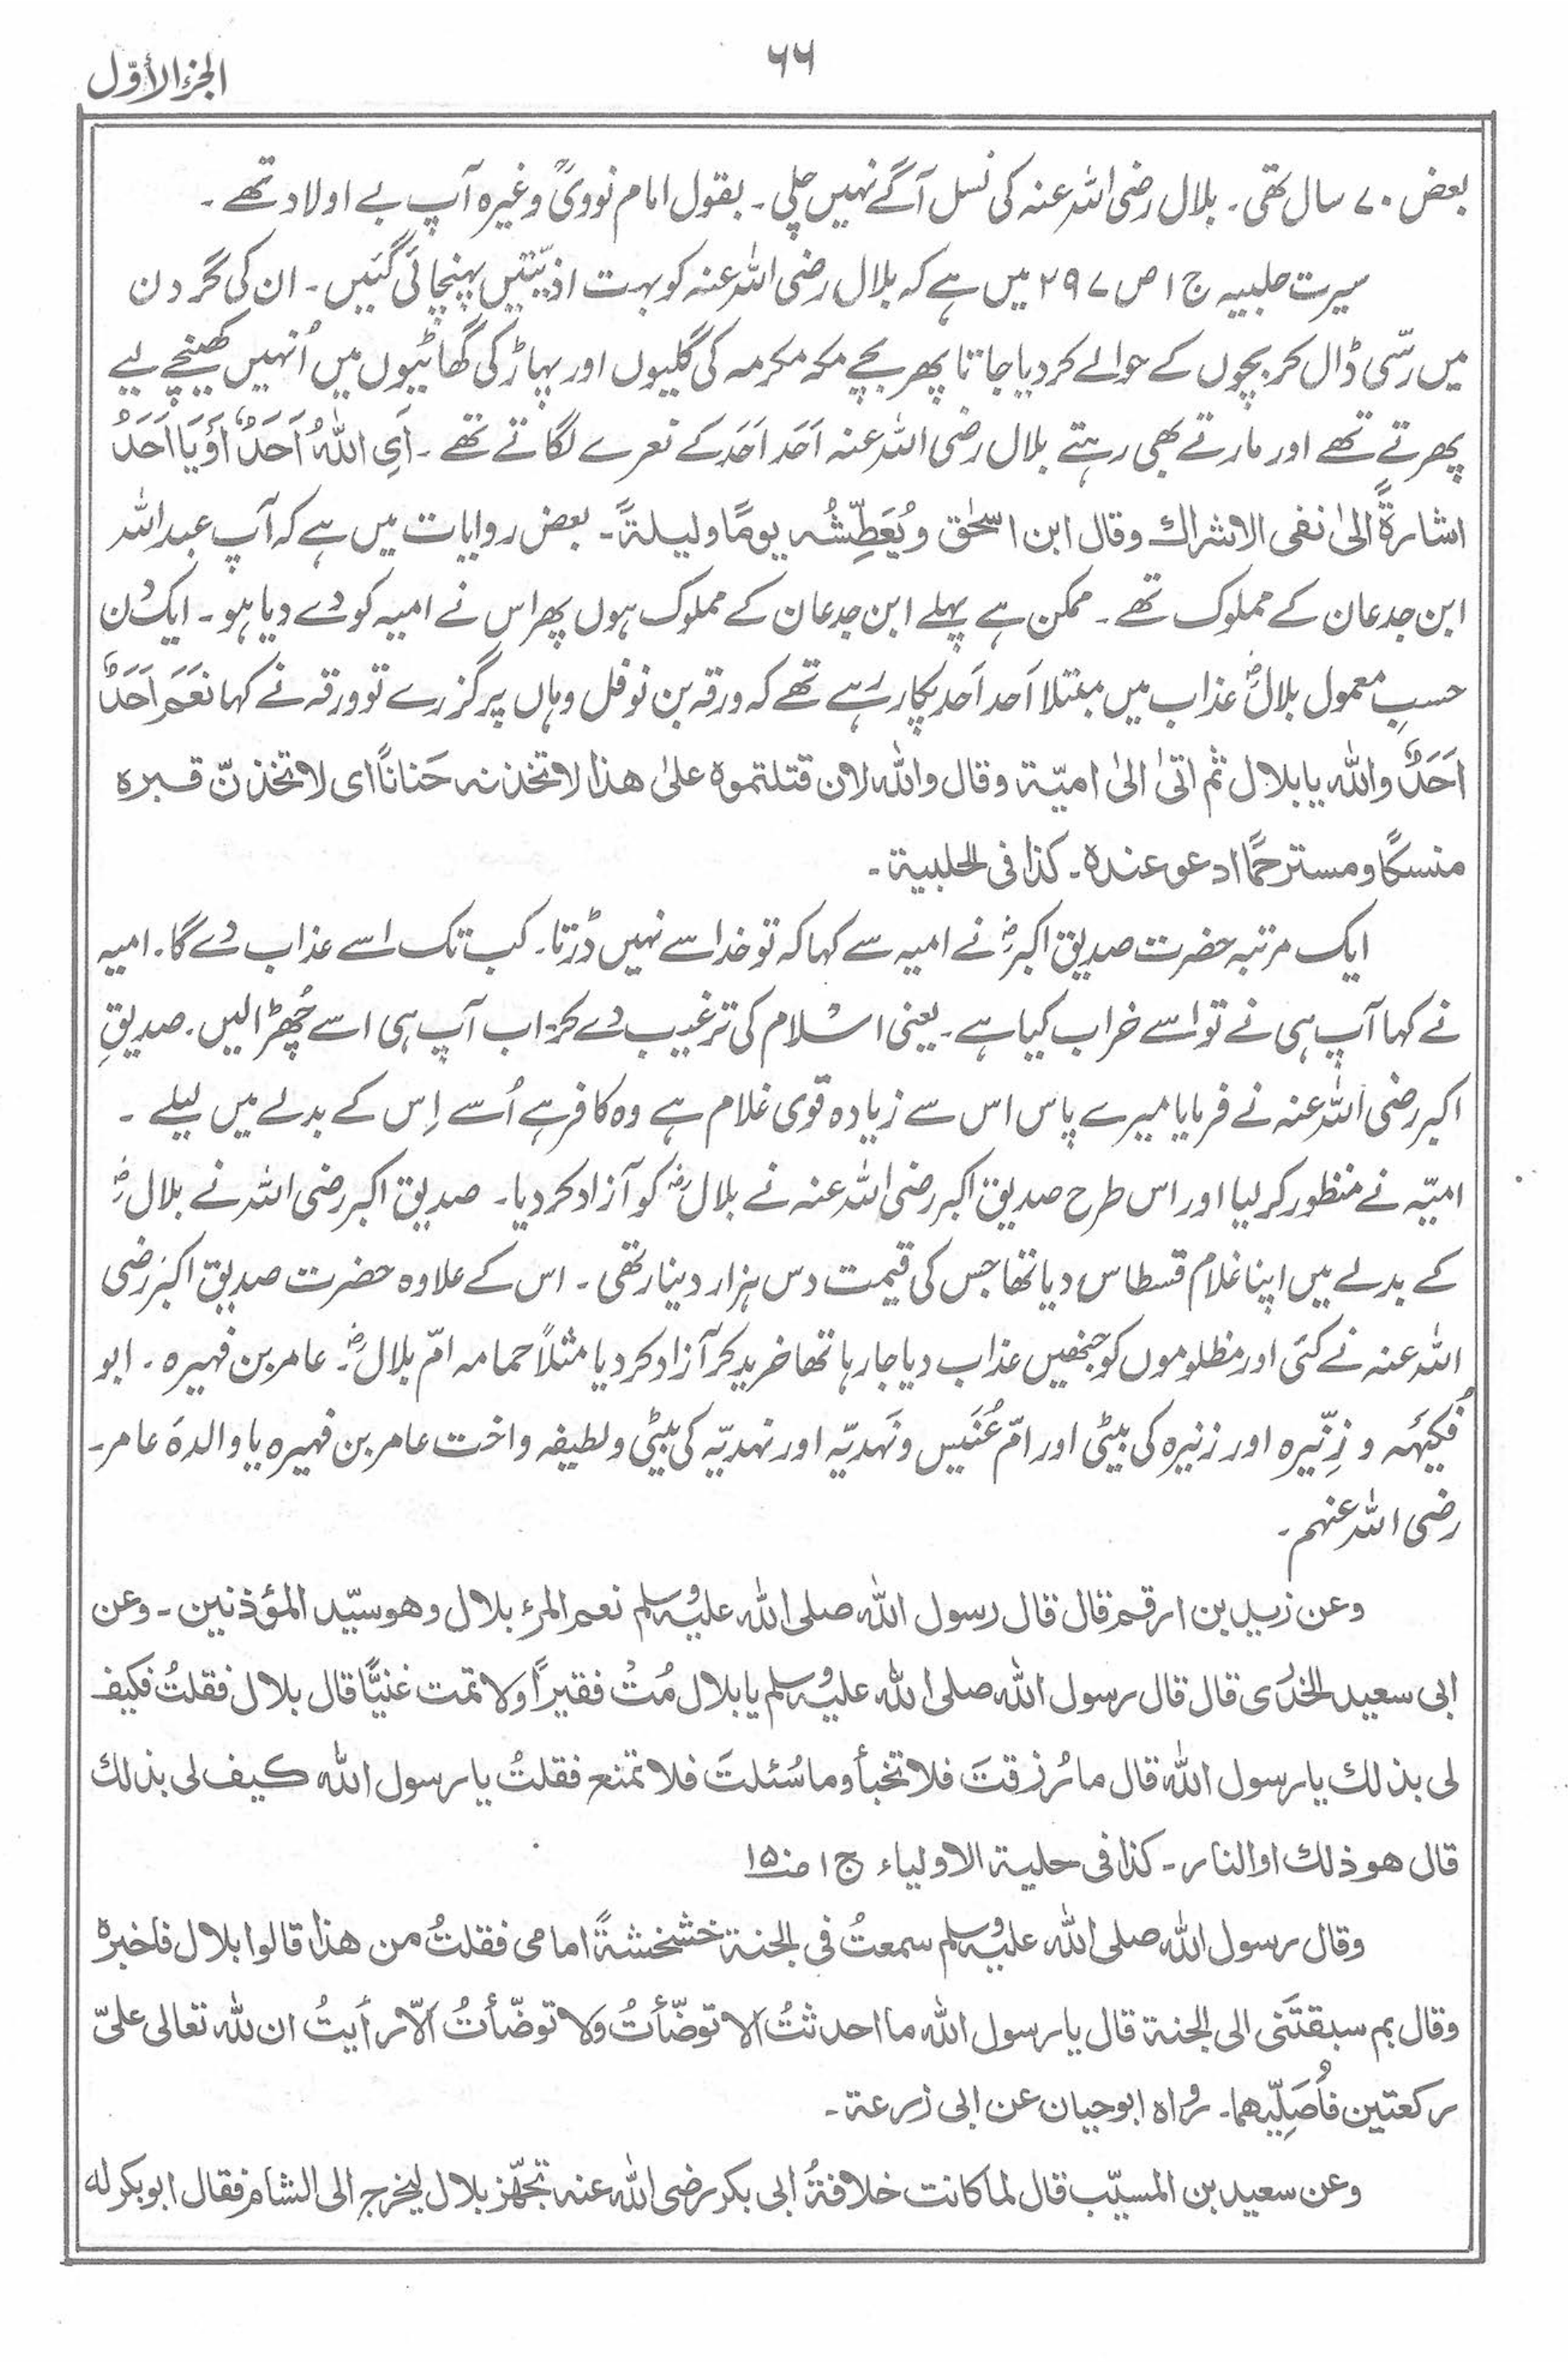 ۶۶
الجزء الأوّل
بعض ۷۰ سال تھی۔ بلال رضی اللہ عنہ کی نسل آگے نہیں چلی۔ بقول امام نوویؒ وغیرہ آپ بے اولاد تھے۔
سیرت حلبیہ ج ۱ ص ۲۹۷ میں ہے کہ بلال رضی اللہ عنہ کو بہت اذیّتیں پہنچائی گئیں۔ ان کی گردن
میں رسّی ڈال کر بچوں کے حوالے کر دیا جاتا پھر بچے مکہ مکرمہ کی گلیوں اور پہاڑ کی گھاٹیوں میں اُنہیں کھینچے لیے
پھرتے تھے اور مارتے بھی رہتے بلال رضی اللہ عنہ اَحَد اَحَد کے نعرے لگاتے تھے۔ اَیِ اللّٰہُ اَحَدٌ اَوْ یَا اَحَدُ
اشارۃً الیٰ نفی الاشراك وقال ابن اسحٰق ویُعَطِّشُہ یومًا ولیلۃً۔ بعض روایات میں ہے کہ آپ عبد اللہ
ابن جدعان کے مملوک تھے۔ ممکن ہے پہلے ابن جدعان کے مملوک ہوں پھر اس نے امیہ کو دے دیا ہو۔ ایک دن
حسبِ معمول بلالؓ عذاب میں مبتلا اَحد اَحد پکار رہے تھے کہ ورقہ بن نوفل وہاں پر گزرے تو ورقہ نے کہا نَعَم اَحَدٌ
اَحَدٌ واللّٰہ یا بلال ثم اتیٰ الیٰ امیّۃ وقال واللّٰہ لان قتلتموہ علیٰ ھذا لاتخذنہ حَنانًا ای لاتخذنّ قبرہ
منسکًا ومسترحمًا ادعو عندہ۔ کذا فی الحلبیۃ۔
ایک مرتبہ حضرت صدیق اکبرؓ نے امیہ سے کہا کہ تو خدا سے نہیں ڈرتا۔ کب تک اسے عذاب دے گا۔ امیہ
نے کہا آپ ہی نے تو اسے خراب کیا ہے۔ یعنی اسلام کی ترغیب دے کر۔ اب آپ ہی اسے چُھڑا لیں۔ صدیقِ
اکبر رضی اللہ عنہ نے فرمایا میرے پاس اس سے زیادہ قوی غلام ہے وہ کافر ہے اُسے اِس کے بدلے میں لیلے۔
امیّہ نے منظور کر لیا اور اس طرح صدیق اکبر رضی اللہ عنہ نے بلالؓ کو آزاد کر دیا۔ صدیق اکبر رضی اللہ نے بلالؓ
کے بدلے میں اپنا غلام قسطاس دیا تھا جس کی قیمت دس ہزار دینار تھی۔ اس کے علاوہ حضرت صدیق اکبر رضی
اللہ عنہ نے کئی اور مظلوموں کو جنھیں عذاب دیا جا رہا تھا خرید کر آزاد کر دیا مثلاً حمامہ امّ بلالؓ۔ عامر بن فہیرہ۔ ابو
فُکیہَہ و زِنّیرہ اور زنیرہ کی بیٹی اور امّ عُنَیس ونَہدیّہ اور نہدیّہ کی بیٹی ولطیفہ واخت عامر بن فہیرہ یا والدہ عامر۔
رضی اللہ عنہم۔
وعن زید بن ارقم قال قال رسول اللّٰہ صلی اللّٰہ علیہ وسلم نعم المرء بلال وھو سیّد المؤذنین۔ وعن
ابی سعید الخدری قال قال رسول اللّٰہ صلی اللّٰہ علیہ وسلم یا بلال مُتْ فقیرًا ولا تمت غنیًّا قال بلال فقلتُ فکیف
لی بذلك یا رسول اللّٰہ قال ما رُزقتَ فلا تخبأ وما سُئلتَ فلا تمنع فقلتُ یا رسول اللّٰہ کیف لی بذلك
قال ھو ذلك او النار۔ کذا فی حلیۃ الاولیاء ج ۱ ص۱۵۰
وقال رسول اللّٰہ صلی اللّٰہ علیہ وسلم سمعتُ فی الجنۃ خشخشۃً امامی فقلتُ من ھذا قالوا بلال فاخبرہ
وقال بم سبقتَنی الی الجنۃ قال یا رسول اللّٰہ ما احدثتُ الا توضّأتُ وَلا توضّأتُ اَلّا رأیتُ ان للّٰہ تعالی علیّ
رکعتین فأُصَلِّیھما۔ رواہ ابو حیان عن ابی زرعۃ۔
وعن سعید بن المسیّب قال لما کانت خلافۃُ ابی بکر رضی اللّٰہ عنہ تجھّز بلال لیخرج الی الشام فقال ابو بکر لہ